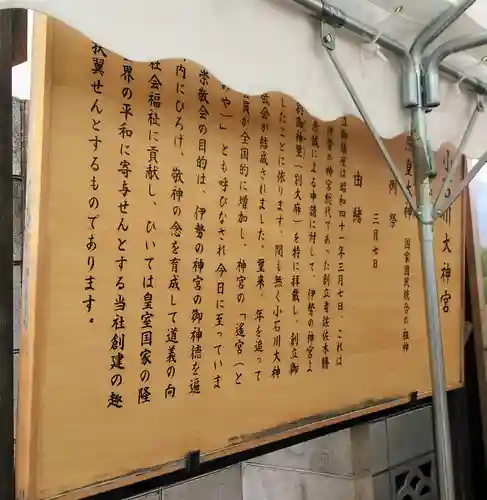 小石川大神宮
皇大神 国家国民統合の祖神
例祭
三月七日
由緒
御鎮座は昭和四十一年三月七日、これは
伊勢の神宮総代であった創立者佐佐木勝
誠による申請に対して、伊勢の神宮よ
御神璽（別大麻）を特に拝戴し、創立御
したことに依ります。間も無く小石川大神
教会が結成されました。翌来、年を追って
員が全国的に増加し、神宮の「遥宮（と
みや）」とも呼びなされ今日に至っていま
崇敬会の目的は、伊勢の神宮の御神徳を遍
内にひろげ、敬神の念を育成して道義の向
社会福祉に貢献し、ひいては皇室国家の隆
世界の平和に寄与せんとする当社創建の趣
扶翼せんとするものであります。